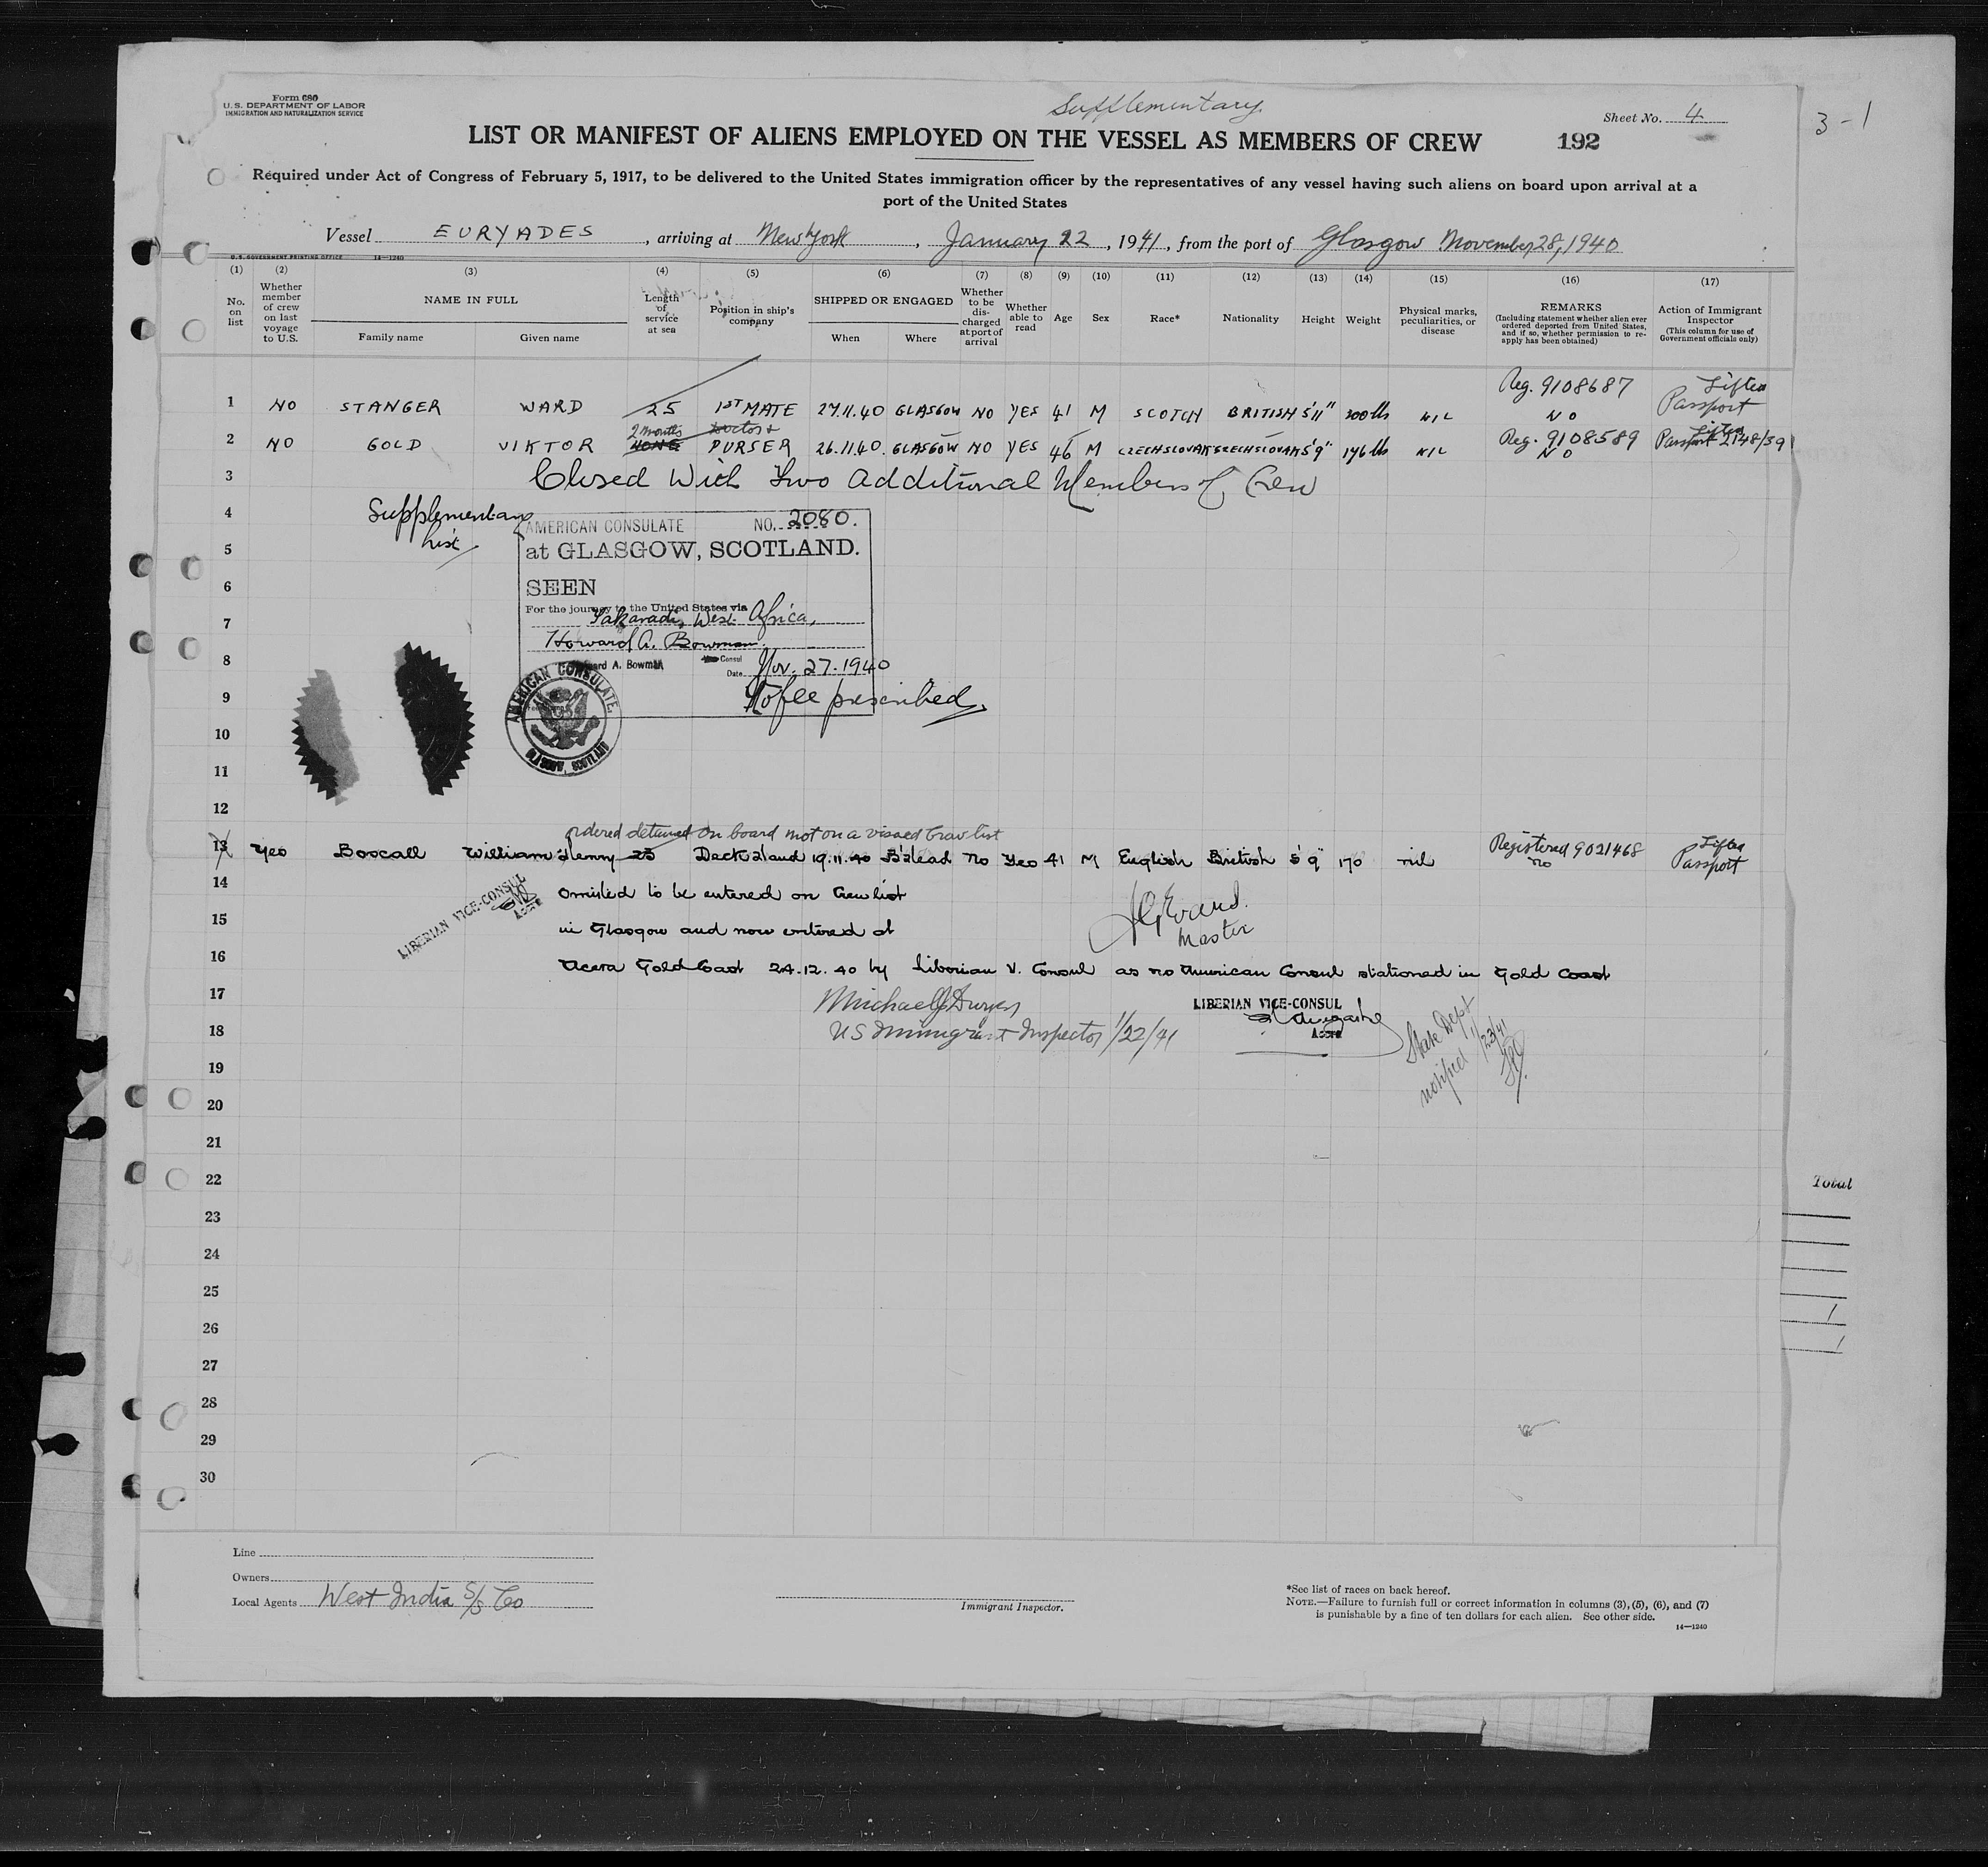 Form 680
U.S. DEPARTMENT OF LABOR
IMMIGRATION AND NATURALIZATION SERVICE
Supplementary
Sheet No. 4
3-1
LIST OR MANIFEST OF ALIENS EMPLOYED ON THE VESSEL AS MEMBERS OF CREW
192
Required under Act of Congress of February 5, 1917, to be delivered to the United States immigration officer by the representatives of any vessel having such aliens on board upon arrival at a
port of the United States
Vessel EURYADES, arriving at New York, January 22, 1941, from the port of Glasgow November 28, 1940
U.S. GOVERNMENT PRINTING OFFICE 14—1240
(1) (2) (3) (4) (5) (6) (7) (8) (9) (10) (11) (12) (13) (14) (15) (16) (17)
No. on list
Whether member of crew on last voyage to U.S.
NAME IN FULL
Family name Given name
Length of service at sea
Position in ship's company
SHIPPED OR ENGAGED
When Where
Whether to be discharged at port of arrival
Whether able to read
Age
Sex
Race*
Nationality
Height
Weight
Physical marks, peculiarities, or disease
REMARKS
(Including statement whether alien ever ordered deported from United States, and if so, whether permission to reapply has been obtained)
Action of Immigrant Inspector
(This column for use of Government officials only)
Reg. 9108687 Lifted
1 NO STANGER WARD 25 1ST MATE 27.11.40 GLASGOW NO YES 41 M SCOTCH BRITISH 5'11" 200 lbs NIL NO Passport
2 months Doctor & Reg. 9108589 Lifted
2 NO GOLD VIKTOR NONE PURSER 26.11.40. GLASGOW NO YES 46 M CZECHSLOVAK CZECHSLOVAK 5'9" 176 lbs NIL NO Passport 2148/39
3 Closed With Two Additional Members of Crew
4 Supplementary
List
AMERICAN CONSULATE NO. 2080.
5 at GLASGOW, SCOTLAND.
6 SEEN
For the journey to the United States via
7 Takaradi, West Africa,
Howard A. Bowman
8 Howard A. Bowman Vice Consul
Date Nov. 27. 1940
9 No fee prescribed.
AMERICAN CONSULATE,
GLASGOW, SCOTLAND
10
11
12
ordered detained on board not on a visaed Crew list
13 Yes Boscall William Henry 25 Deck Hand 19.11.40 B'head No Yes 41 M English British 5'9" 170 nil Registered 9021468 no Lifted Passport
14 Omitted to be entered on Crew list
LIBERIAN VICE-CONSUL
Accra
15 in Glasgow and now entered at
Master
16 Accra Gold Coast 24.12.40 by Liberian V. Consul as no American Consul stationed in Gold Coast
17 Michael J Dwyer
LIBERIAN VICE-CONSUL
18 US Immigrant Inspector 1/22/41
Accra
State Dept
notified 1/23/41
19
20
21
22
23
24
25
26
27
28
29
30
Total
1
1
Line
Owners
Local Agents West India S/S Co
Immigrant Inspector.
*See list of races on back hereof.
NOTE.—Failure to furnish full or correct information in columns (3), (5), (6), and (7)
is punishable by a fine of ten dollars for each alien. See other side.
14—1240